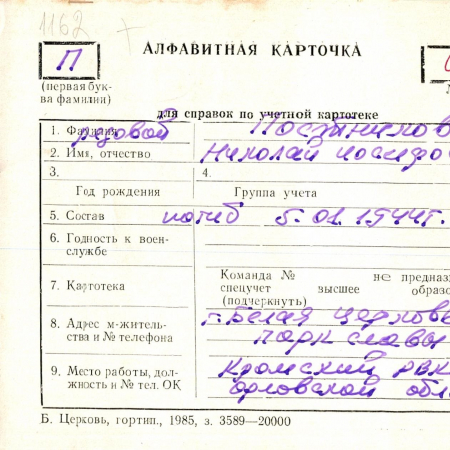 1162
АЛФАВИТНАЯ КАРТОЧКА
П
(первая бук-
ва фамилии)
для справок по учетной картотеке
1. Фамилия рядовой Постников
2. Имя, отчество Николай Иосифо
3. 4.
Год рождения Группа учета
5. Состав погиб 5.01.1944г.
6. Годность к воен-
службе
7. Картотека Команда № не предназ
спецучет высшее образо
(подчеркнуть)
8. Адрес м-житель- г. Белая Церковь
ства и № телефона парк славы
9. Место работы, дол- Кромский РВК
жность и № тел. ОК Орловской обл.
Б. Церковь, гортип., 1985, з. 3589—20000